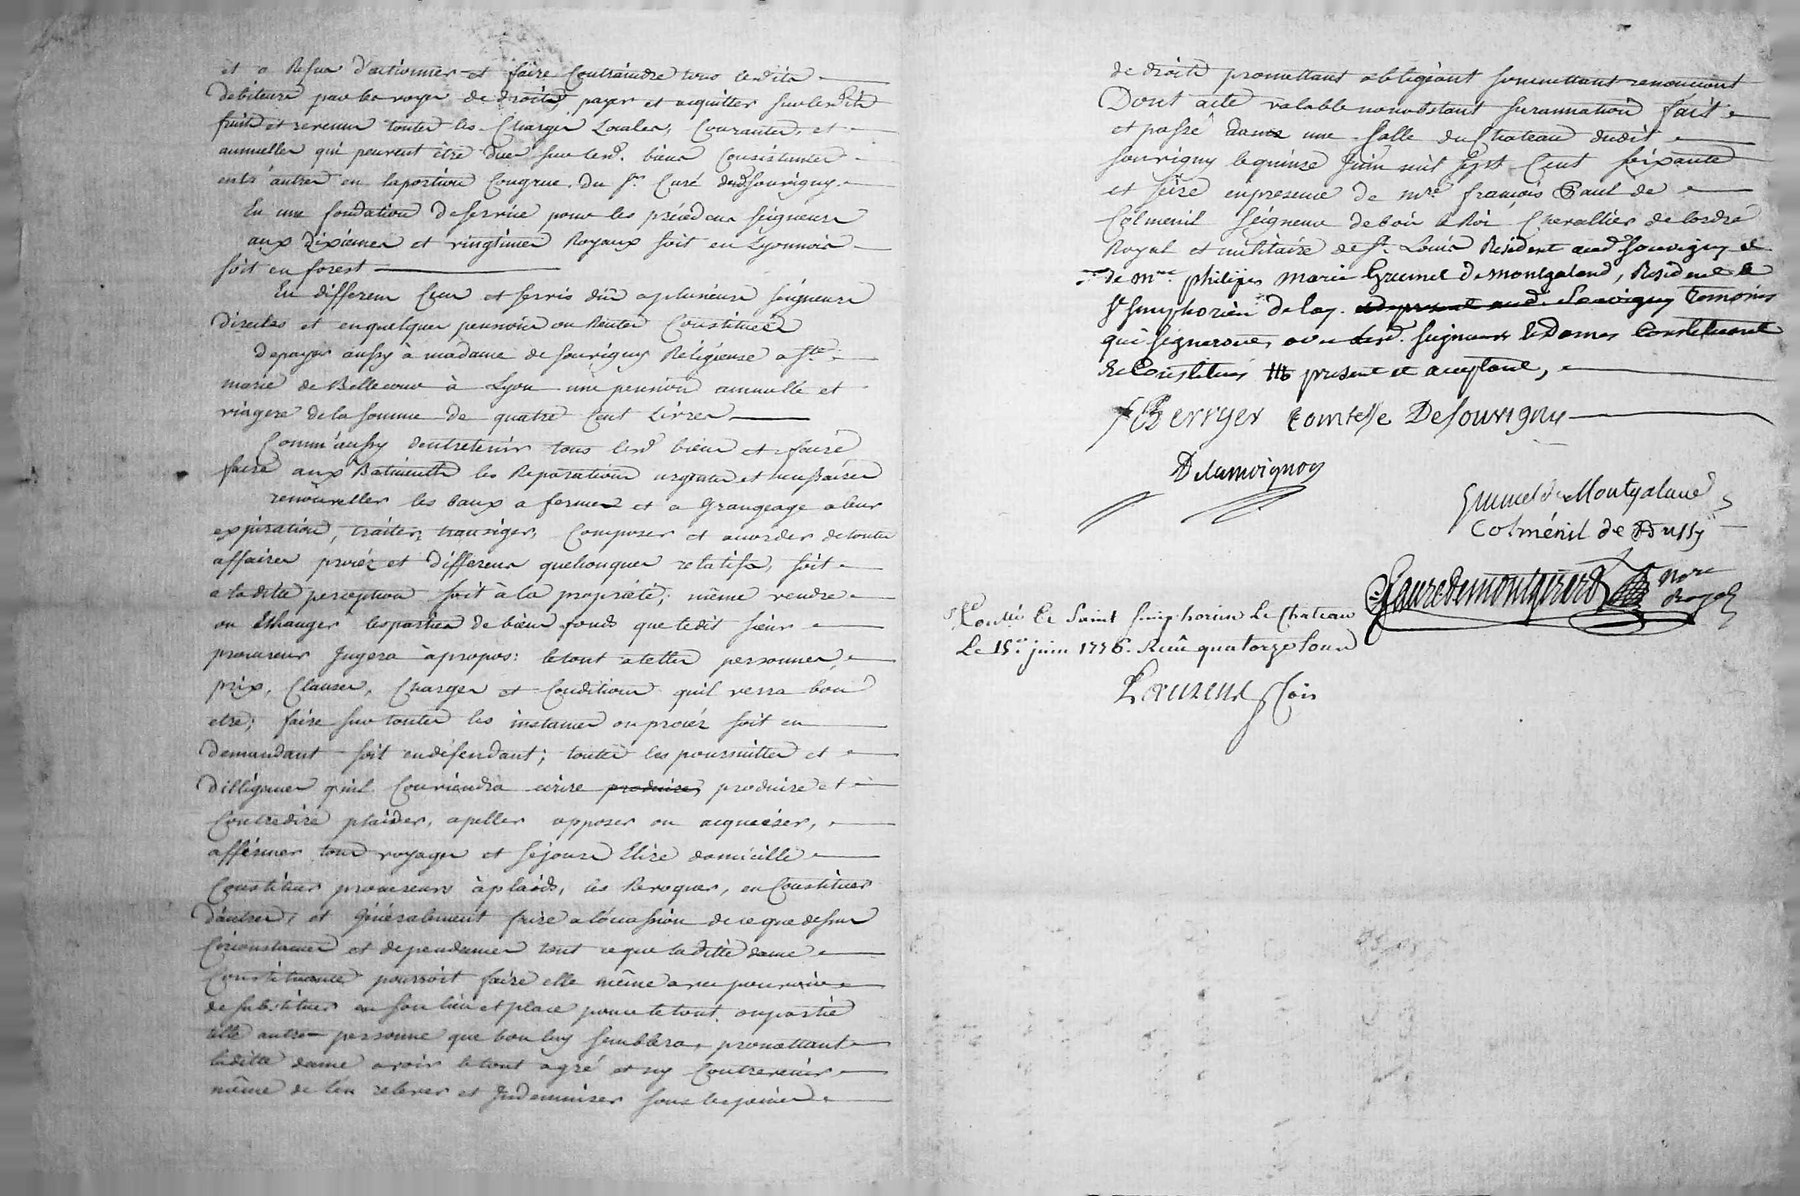 et a Refus d'actionner et faire Contraindre tous lesdits
debiteurs par les voyes de droits, payer et acquitter sur lesdits
fruits et revenus toutes les Charges Locales, Courantes, et
annuelles qui peuvent être dues sur lesd. biens Consistantes
entr'autres en la portion Congrue du Sr. Curé dud. Souvigny.
En une fondation de service pour les précédens seigneurs
aux dixiemes et vingtiemes Royaux soit en Lyonnois
soit en forest
En differens Cens et servis dûs a plusieurs seigneurs
Directes et en quelques pensions ou Rentes Constituées
de payer aussy à madame de Souvigny Religieuse a Ste.
marie de Bellecour à Lyon une pension annuelle et
viagere de la somme de quatre Cent Livres
Comm'aussy d'entretenir tous lesd. biens et faire
faire aux Batiments les Reparations urgentes et necessaires
renouveller les baux a fermes et a Grangeage a leur
expiration, traiter, transiger, Composer et accorder de toutes
affaires procéz et differens quelconques relatifs, soit
a la dite perception soit à la propriété; même vendre
ou Echanger les parties de biens fonds que ledit sieur
procureur Jugera à propos: le tout a telles personnes,
prix, Clauses, Charges et Conditions qu'il verra bon
etre; faire sur toutes les instances ou procéz soit en
demandant soit en défendant; toutes les poursuittes et
dilligences qu'il Conviendra ecrire produire, produire et
Contredire plaider, apeller opposer ou acquiéser,
affirmer tous voyages et séjours Elire domicille
Constituer procureurs à plaids, les Revoquer, en Constituer
d'autres, et Généralement faire a l'occassion de ce que dessus
Circonstances et dependances tout ce que la ditte dame
Constituante pourroit faire elle même avec pouvoir
de substituer en son lieu et place pour le tout ou partie
telle autre personne que bon luy semblera, promettant
laditte dame avoir le tout agré et ny Contrevenir
même de l'en relever et Indemniser sous les peines
de droits promettant obligeant soumettant renonceant
Dont acte valable nonobstant surannation fait
et passé dans une salle du Chateau dudit
souvigny le quinze Juin mil sept Cent soixante
et seize en presence de mre. francois Paul de
Colmenil seigneur de bois le Roi Chevallier de lordre
Royal et militaire de St. Louis Resident aud. Souvigny et
de mre. philipes marie Grumel de montgaland, Resident a
St. simphorien de lay. Souvigny temoins
qui signeront, avec lesd. seigneur & dames Constituante
& Constitués present et acceptant,
Berryer Comtesse De Souvigny
Delamoignon
Grumel de Montgaland
Colménil de Bussy
Faure de montgirard Nore Royal
Collé a Saint simphorien Le Chateau
Le 15. juin 1776. Receu quatorze sous